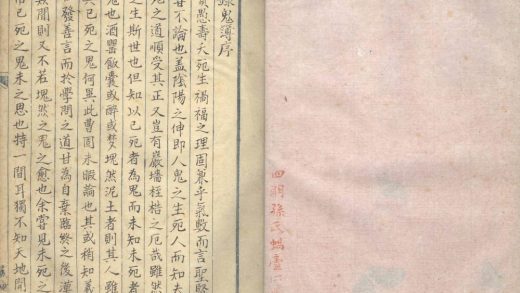 四明孫氏蝸廬
錄鬼簿序
賢愚壽夭死生禍福之理固兼乎氣數而言聖賢
不論也蓋陰陽之伸即人鬼之生死人而知夫
死之道順受其正又豈有巖墻桎梏之厄哉雖然
之生斯世也但知以已死者為鬼而未知未死者
鬼也酒罌飯囊或醉或夢塊然泥土者則其人雖
與已死之鬼何異此曹固未暇論也其或稍知義
發善言而於學問之道甘為自棄臨終之後漠
無聞則又不若塊然之鬼之愈也余嘗見未死之
弔已死之鬼未之思也特一間耳獨不知天地開